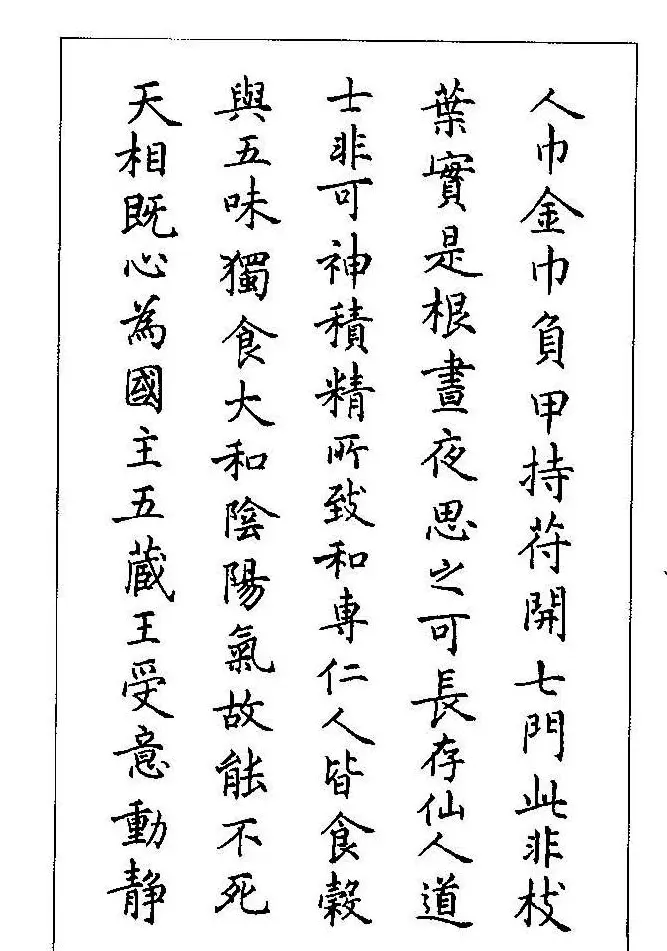 人巾金巾負甲持苻開七門此非枝
葉實是根晝夜思之可長存仙人道
士非可神積精所致和専仁人皆食穀
與五味獨食大和陰陽氣故能不死
天相既心為國主五蔵王受意動静